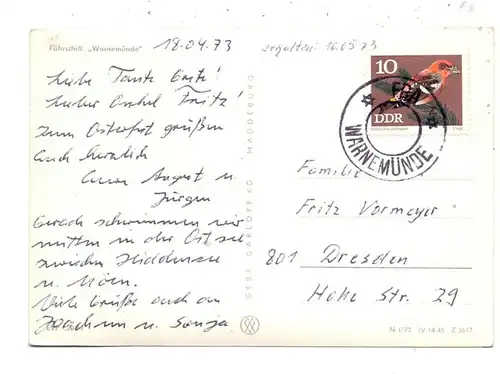 Fährschiff „Warnemünde"
18.04.73
erhalten: 16.05.73
Liebe Tante Grete!
Lieber Onkel Fritz!
Zum Osterfest grüßen
Euch herzlich
Eure August u.
Jürgen
Gerade schwimmen wir
mitten in der Ostsee
zwischen Hiddensee
u. Möen.
Viele Grüße auch an
Joachim u. Sonja
GEBR. GARLOFF KG MAGDEBURG
10
DDR
WARNEMÜNDE
Familie
Fritz Vormeyer
801 Dresden
Hohe Str. 29
N 1/73 IV-14-45 Z 3617